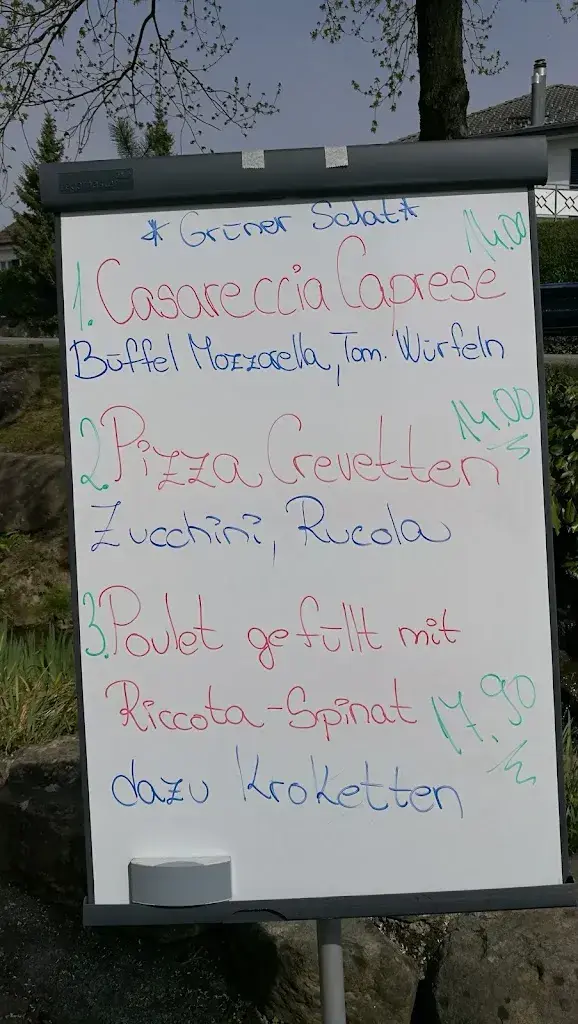 *Grüner Salat*
14.00
1. Casareccia Caprese
Büffel Mozzarella, Tom. Würfeln
14.00
2. Pizza Crevetten
Zucchini, Rucola
3. Poulet gefüllt mit
Riccota-Spinat 17.90
dazu Kroketten